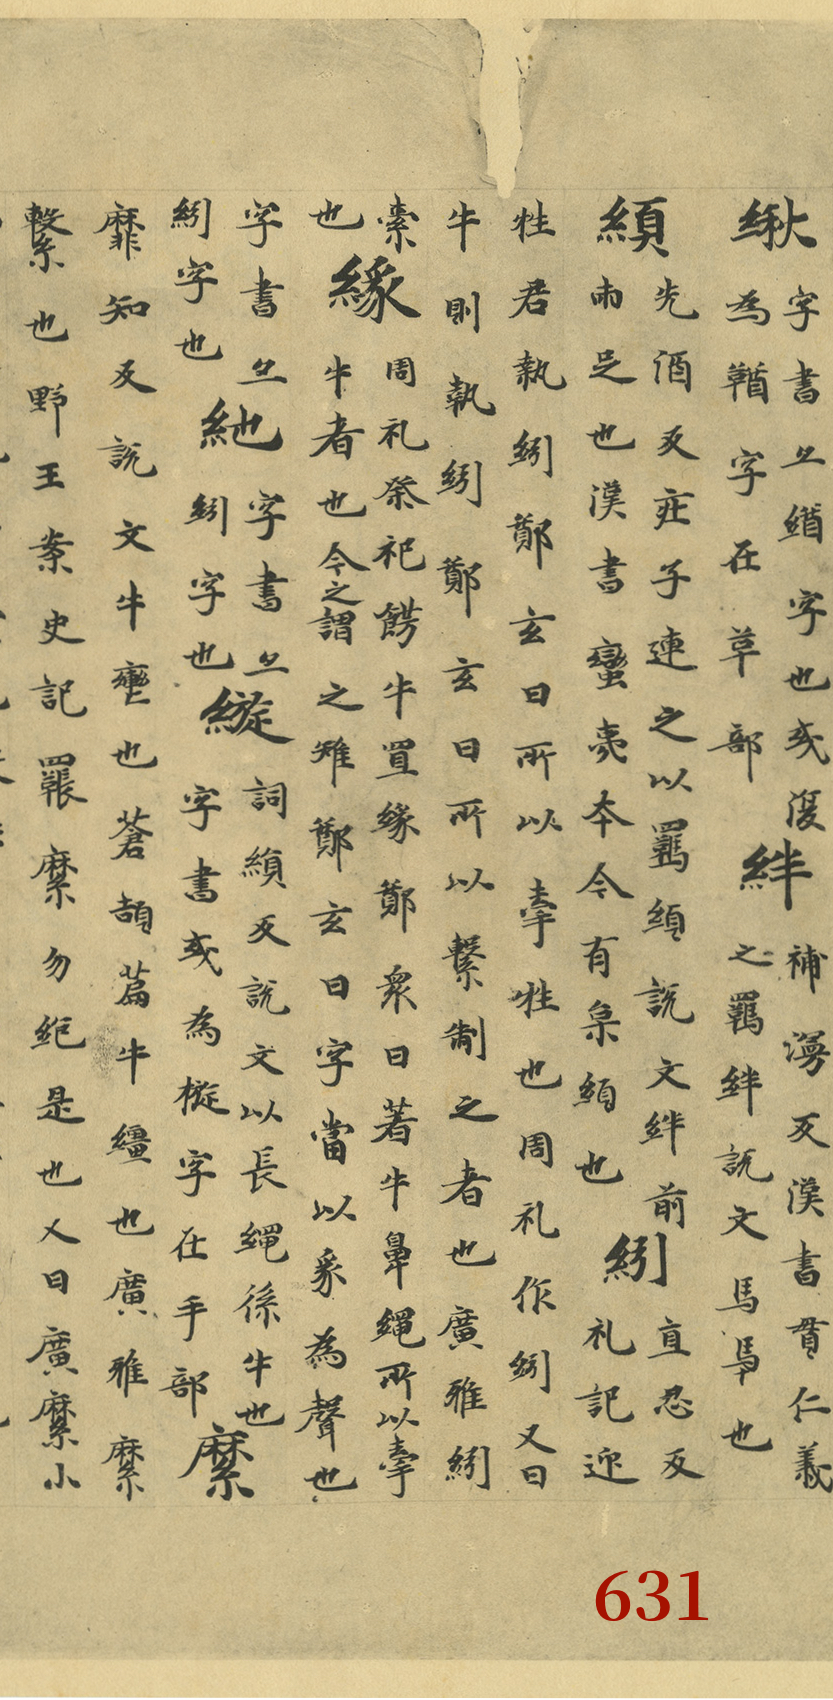 字書亦緧字也或復
為鞧字在草部
絆
補湯反漢書貫仁義
之羈絆說文馬馽也
䋶
先酒反莊子連之以羈䋶說文絆前
兩足也漢書蠻夷卒令有罪䋶也
紖
直忍反
礼記迎
牲君執紖鄭玄曰所以牽牲也周礼作紖又曰
牛則執紖鄭玄曰所以繫制之者也廣雅紖
索
也
緣
周礼祭祀餝牛置緣鄭衆曰著牛鼻繩所以牽
牛者也今之謂之雉鄭玄曰字當以豸為聲也
字書亦
紖字也
紖字也
字書亦
縼
詞䋶反說文以長繩係牛也
字書或為㯀字在手部
縻
靡知反說文牛轡也蒼頡篇牛繮也廣雅縻
繫也野王案史記羈縻勿絕是也又曰廣縻小